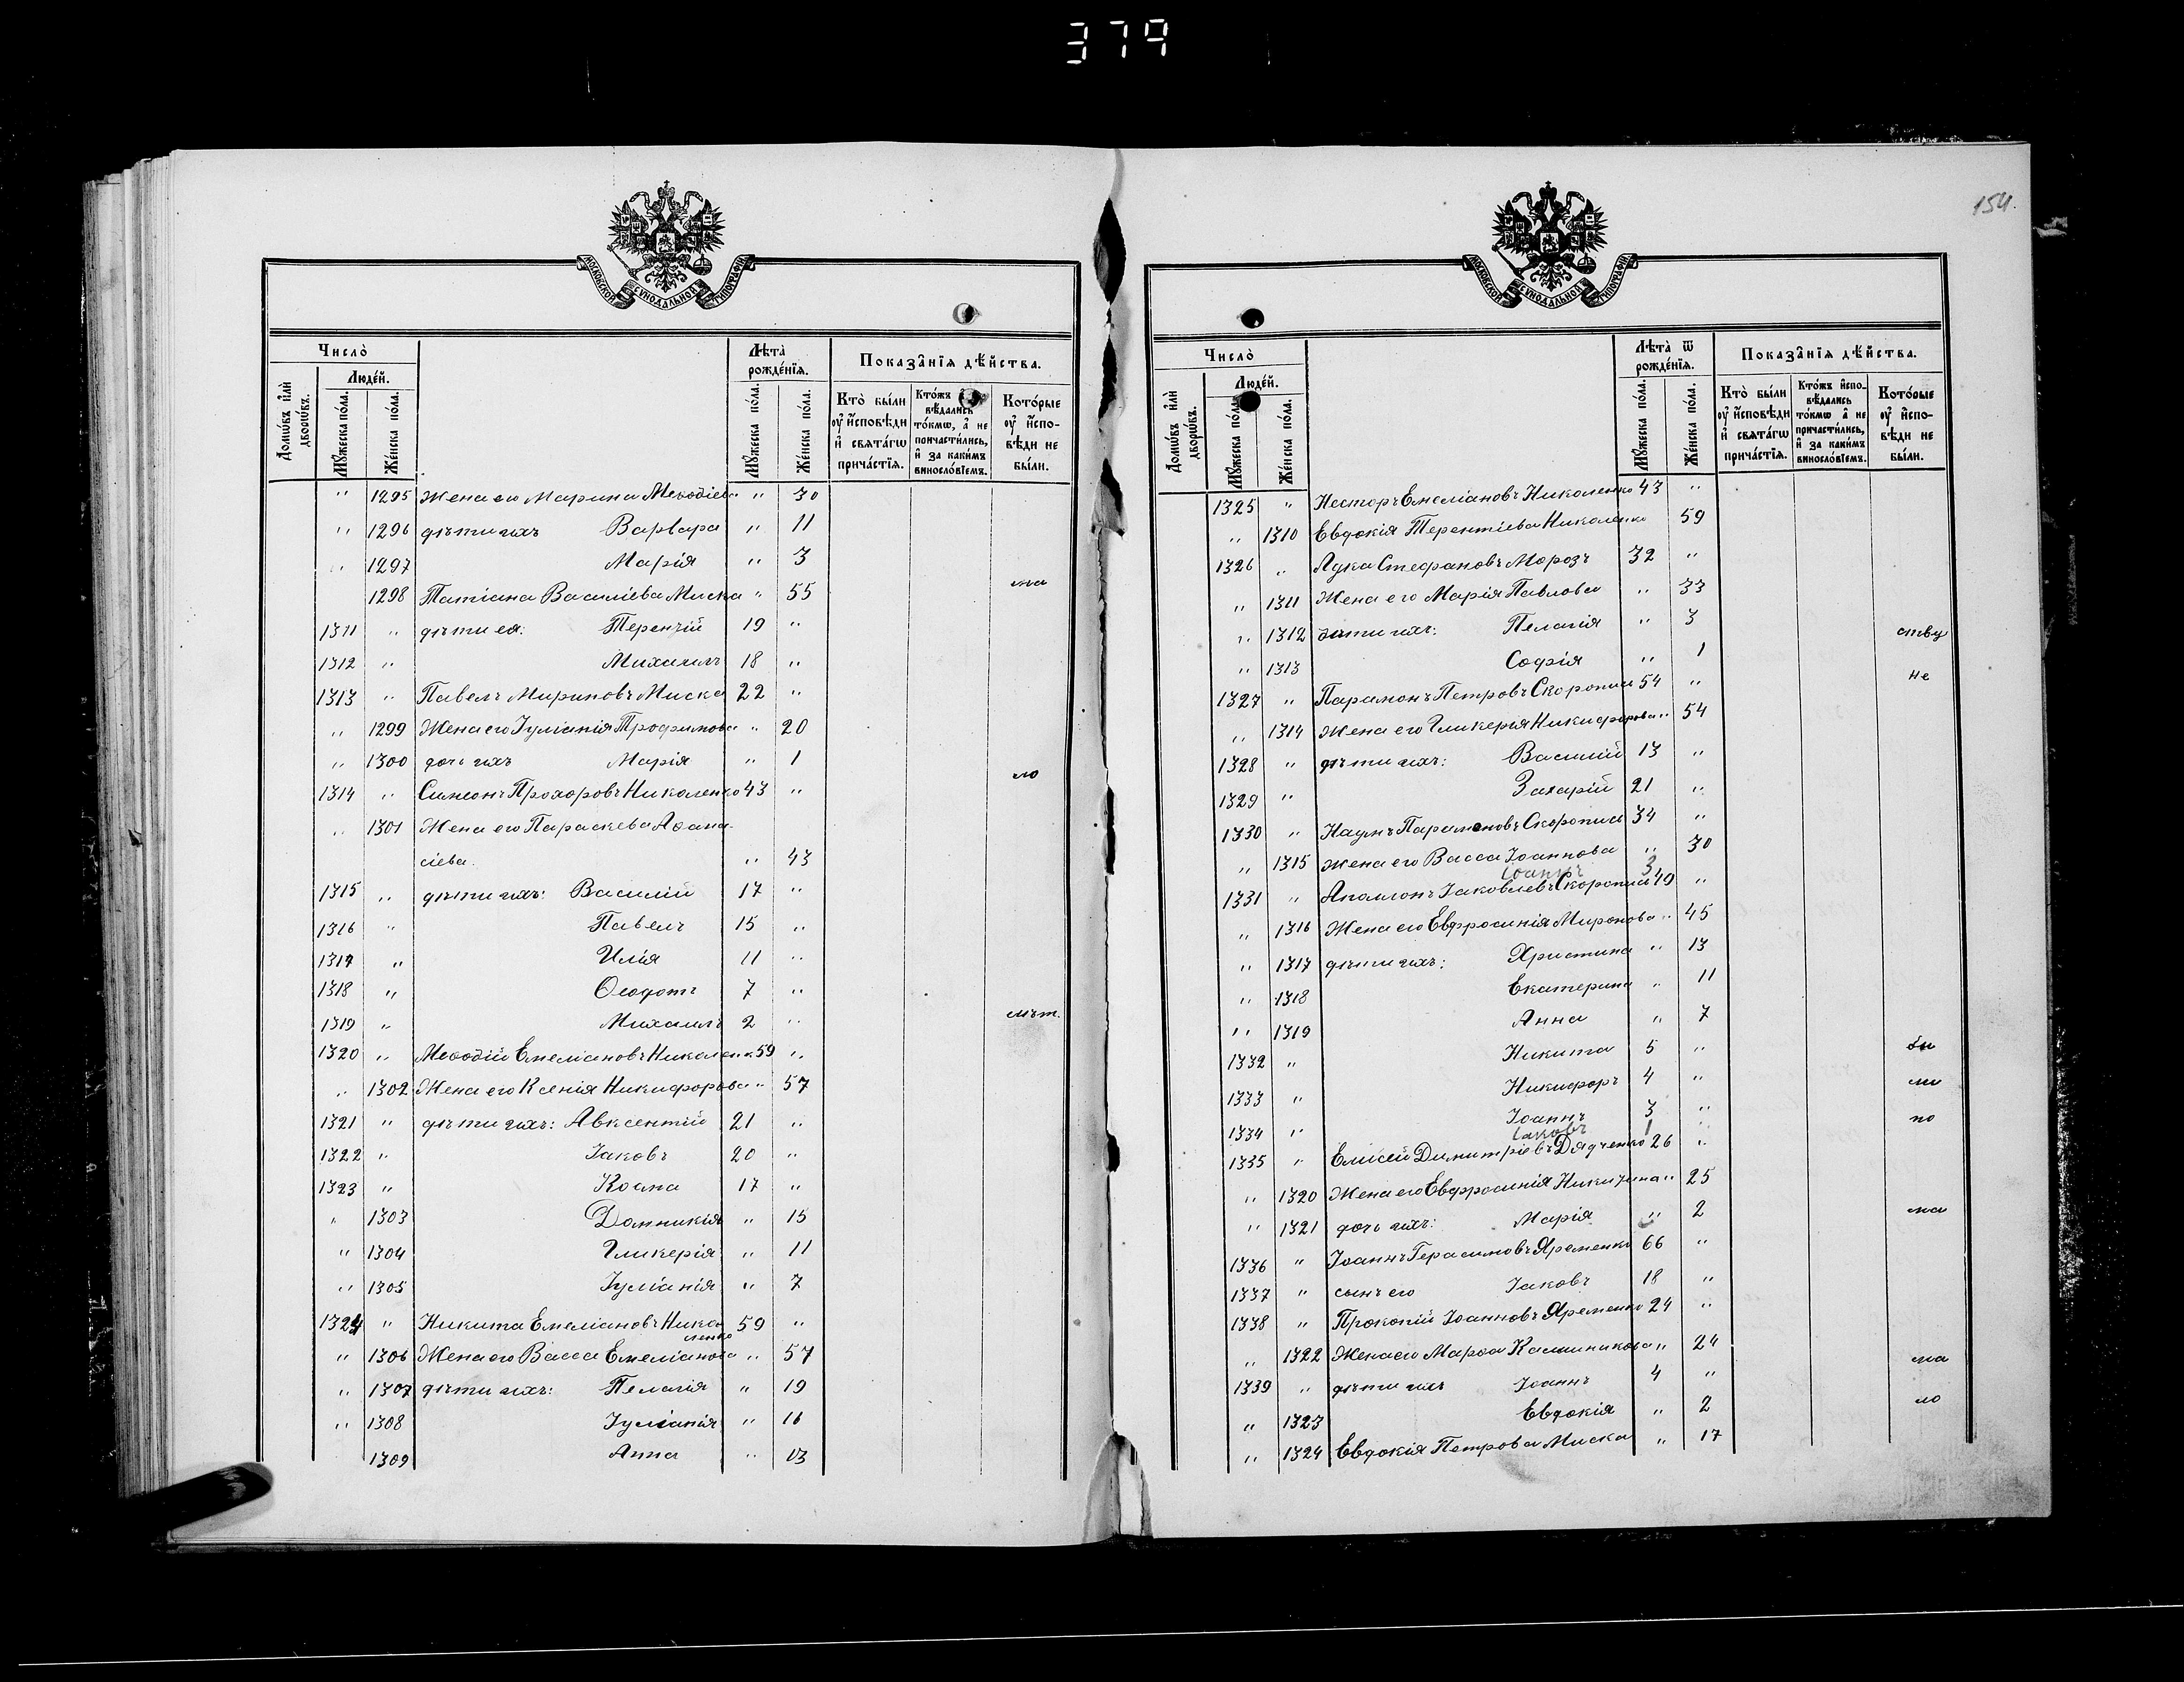 379
154.
МОСКОВСКОЙ СѴНОДАЛЬНОЙ ТИПОГРАФІИ
Число̀
Людéй.
Домѡ́въ и҆лѝ дворѡ́въ.
Мꙋ́жеска по́ла.
Же́нска по́ла.
Лѣ́та рожде́нїѧ.
Мꙋ́жеска по́ла.
Же́нска по́ла.
Показа̑нїѧ дѣ́йства.
Кто̀ бы́ли ᲂу҆ и҆́сповѣди и҆ свѧта́гѡ прича́стїѧ.
вѣ́дались то́кмѡ, а҆ не причасти́лись, и҆ за каки́мъ винослѡ́вїемъ.
Кото́рые ᲂу҆ и҆́сповѣди не бы́ли.
" 1295 Жена его Марина Меѳодіева " 30
" 1296 дѣти ихъ Варвара " 11
" 1297 Марія " 3
1298 Татіана Василіева Миска " 55 ма
1311 " дѣти ея: Терентій 19 "
1312 " Михаилъ 18 "
1313 " Павелъ Мироновъ Миска 22 "
" 1299 Жена его Іуліанія Трофимова " 20
" 1300 дочь ихъ Марія " 1
ло
1314 " Симеонъ Прохоровъ Николенко 43 "
" 1301 Жена его Параскева Аѳана-
сіева. " 43
1315 " дѣти ихъ: Василій 17 "
1316 " Павелъ 15 "
1317 " Илія 11 "
1318 " Ѳеодотъ 7 "
1319 " Михаилъ 2 " лѣт.
1320 " Меѳодій Емеліановъ Николенк 59 "
" 1302 Жена его Ксенія Никифорова " 57
1321 " дѣти ихъ: Авксентій 21 "
1322 " Іаковъ 20 "
1323 " Косма 17 "
" 1303 Домникія " 15
" 1304 Гликерія " 11
" 1305 Іуліанія " 7
1324 " Никита Емеліановъ Нико 59 "
ленко
" 1306 Жена его Васса Емеліанова " 57
" 1307 дѣти ихъ: Пелагія " 19
" 1308 Іуліанія " 16
1309 Анна " 13
МОСКОВСКОЙ СѴНОДАЛЬНОЙ ТИПОГРАФІИ
Число̀
Людéй.
Домѡ́въ и҆лѝ дворѡ́въ.
Мꙋ́жеска по́ла.
Же́нска по́ла.
Лѣ́та ѿ рожде́нїѧ.
Мꙋ́жеска по́ла.
Же́нска по́ла.
Показа̑нїѧ дѣ́йства.
Кто̀ бы́ли ᲂу҆ и҆́сповѣди и҆ свѧта́гѡ прича́стїѧ.
Кто́жъ и҆спо-вѣ́дались то́кмѡ а҆ не причасти́лись, и҆ за каки́мъ винослѡ́вїемъ.
Кото́рые ᲂу҆ и҆спо-вѣди не бы́ли.
1325 " Несторъ Емеліановъ Николенко 43 "
" 1310 Евдокія Терентіева Николенко 59
1326 " Лука Стефановъ Морозъ 32 "
" 1311 Жена его Марія Павлова " 33
" 1312 дѣти ихъ: Пелагія " 3 ству
" 1313 Софія " 1
не
1327 " Парамонъ Петровъ Скоропис 54 "
" 1314 Жена его Гликерья Никифорова " 54
1328 " дѣти ихъ: Василій 13 "
1329 " Захарій 21 "
1330 " Наумъ Парамоновъ Скоропис 34 "
" 1315 Жена его Васса Іоаннова " 30
Іоаннъ 3
1331 " Аполлонъ Іаковлевъ Скоропис 49 "
" 1316 Жена его Евфросинія Миронова " 45
" 1317 дѣти ихъ: Христина " 13
" 1318 Екатерина " 11
" 1319 Анна " 7
1332 " Никита 5 " бы
1333 " Никифоръ 4 " ли
1334 " Іоаннъ 3 " по
Іаковъ 1
1335 " Елисей Димитріевъ Дядченко 26 "
" 1320 Жена его Евфросинія Никитина " 25
" 1321 дочь ихъ: Марія " 2 ма
1336 " Іоаннъ Герасимовъ Яременко 66 "
1337 " сынъ его Іаковъ 18 "
1338 " Прокопій Іоанновъ Яременко 24 "
" 1322 Жена его Марѳа Калинникова " 24
1339 " дѣти ихъ Іоаннъ 4 " ма
" 1323 Евдокія " 2 ло
" 1324 Евдокія Петрова Миска " 17